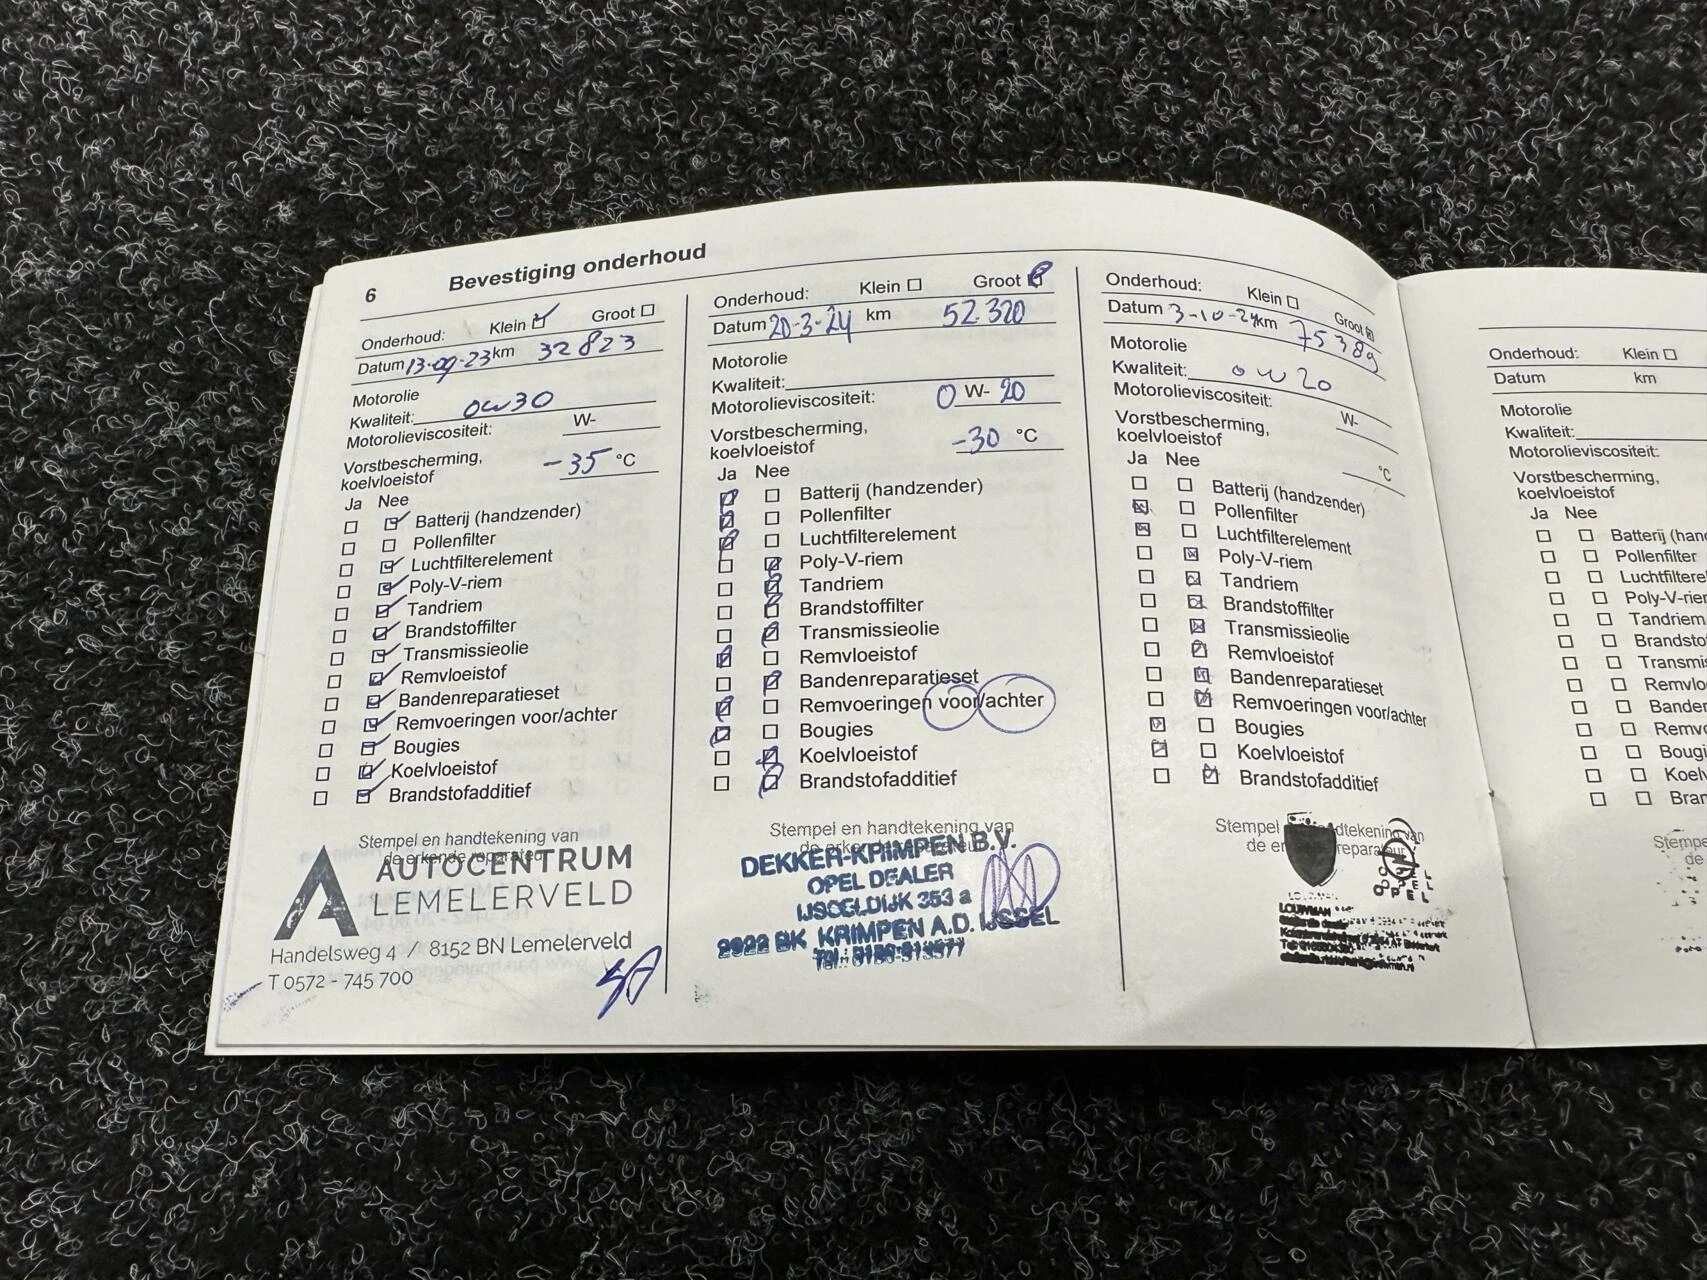 6 Bevestiging onderhoud
Onderhoud: Klein Groot
Datum 13-09-23 km 32823
Motorolie
Kwaliteit: 0w30
Motorolieviscositeit: W-
Vorstbescherming,
koelvloeistof -35 °C
Ja Nee
Batterij (handzender)
Pollenfilter
Luchtfilterelement
Poly-V-riem
Tandriem
Brandstoffilter
Transmissieolie
Remvloeistof
Bandenreparatieset
Remvoeringen voor/achter
Bougies
Koelvloeistof
Brandstofadditief
Stempel en handtekening van
de erkende reparateur
AUTOCENTRUM
LEMELERVELD
Handelsweg 4 / 8152 BN Lemelerveld
T 0572 - 745 700
Onderhoud: Klein Groot
Datum 20-3-24 km 52.320
Motorolie
Kwaliteit:
Motorolieviscositeit: 0 W- 20
Vorstbescherming,
koelvloeistof -30 °C
Ja Nee
Batterij (handzender)
Pollenfilter
Luchtfilterelement
Poly-V-riem
Tandriem
Brandstoffilter
Transmissieolie
Remvloeistof
Bandenreparatieset
Remvoeringen voor/achter
Bougies
Koelvloeistof
Brandstofadditief
Stempel en handtekening van
de erkende reparateur
DEKKER-KRIMPEN B.V.
OPEL DEALER
IJSSELDIJK 353 a
2922 BK KRIMPEN A.D. IJSSEL
Onderhoud: Klein Groot
Datum 3-10-24 km 75389
Motorolie
Kwaliteit: 0w20
Motorolieviscositeit: W-
Vorstbescherming,
koelvloeistof °C
Ja Nee
Batterij (handzender)
Pollenfilter
Luchtfilterelement
Poly-V-riem
Tandriem
Brandstoffilter
Transmissieolie
Remvloeistof
Bandenreparatieset
Remvoeringen voor/achter
Bougies
Koelvloeistof
Brandstofadditief
Stempel handtekening van
de er reparateur
OPEL
LOUWMAN
Onderhoud: Klein
Datum km
Motorolie
Kwaliteit:
Motorolieviscositeit:
Vorstbescherming,
koelvloeistof
Ja Nee
Batterij (hand
Pollenfilter
Luchtfilterel
Poly-V-rien
Tandriem
Brandsto
Transmi
Remvlo
Bander
Remvo
Bougi
Koelv
Bran
Stempe
de